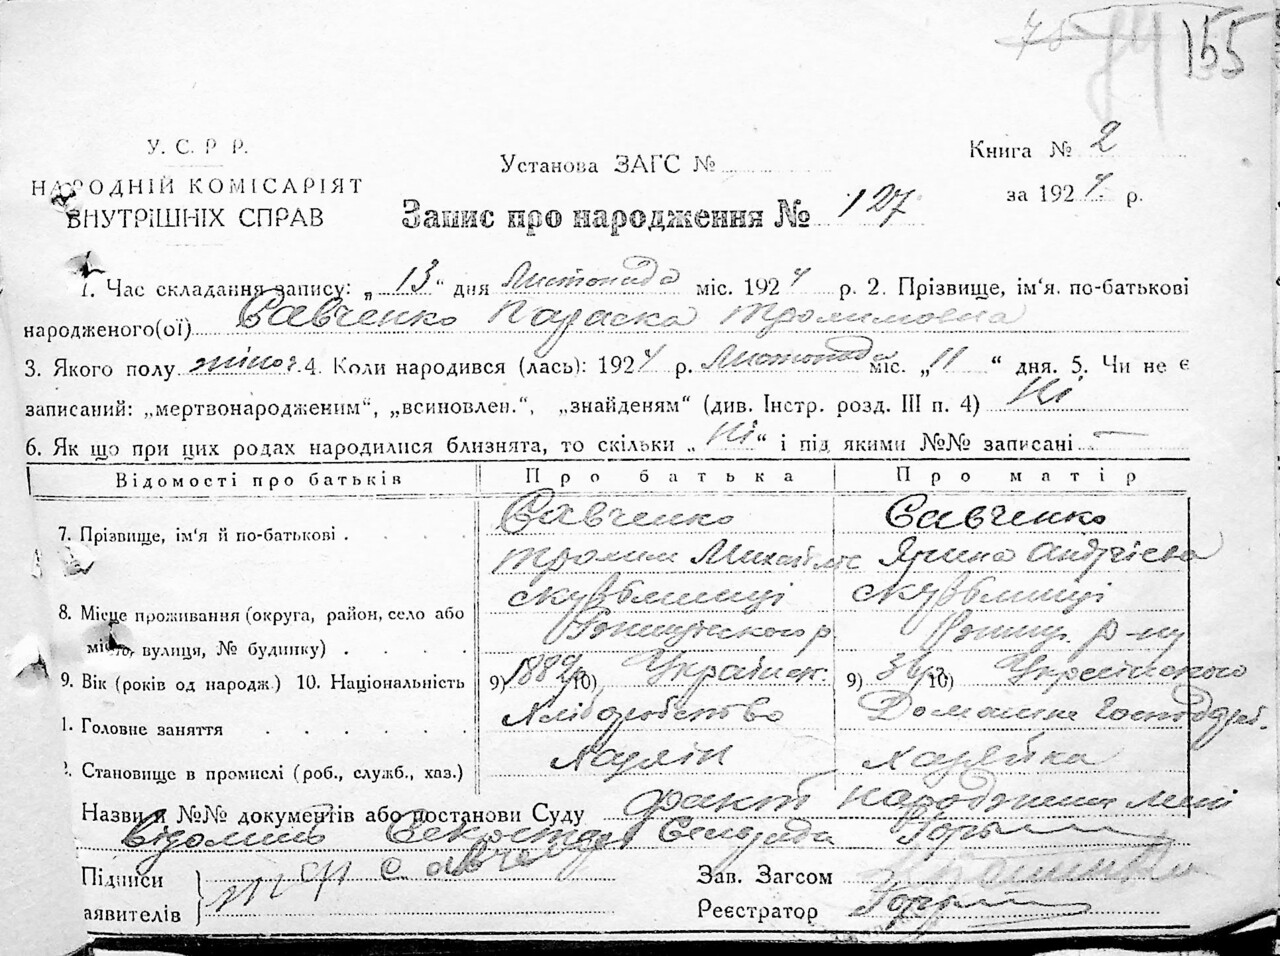 78 74 155
У. С. Р. Р.
НАРОДНІЙ КОМІСАРІЯТ
ВНУТРІШНІХ СПРАВ
Установа ЗАГС №
Книга № 2
за 1924 р.
Запис про народження № 127
1. Час складання запису: „13“ дня Листопада міс. 1924 р. 2. Прізвище, ім‘я. по-батькові
народженого(ої) Савченко Параска Тролимовна
3. Якого полу жіноч. 4. Коли народився (лась): 1924 р. Листопада міс. „11“ дня. 5. Чи не є
записаний: „мертвонародженим“, „всиновлен.“, „знайденям“ (див. Інстр. розд. III п. 4) Ні
6. Як що при цих родах народилися близнята, то скільки „Ні“ і під якими №№ записані —
Відомості про батьків Про батька Про матір
7. Прізвище, ім‘я й по-батькові . Савченко Савченко
Тролим Андрієва
8. Місце проживання (округа, район, село або
міс., вулиця, № будинку) . р. р-ну
9. Вік (років од народж.) 10. Національність 9) 10) Українск. 9) 10) Українского
1. Головне заняття Хліборобство Домашне Господарс.
2. Становище в промислі (роб., служб., хаз.) Хазяїн хазяйка
Назви й №№ документів або постанови Суду факт народження мені
відомий Секретар Сельради
Підписи Савченко
аявителів
Зав. Загсом
Реєстратор